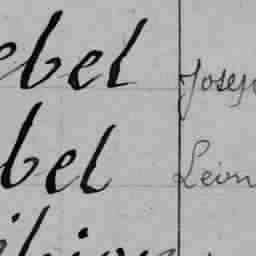 ebel Josep
bel Léon